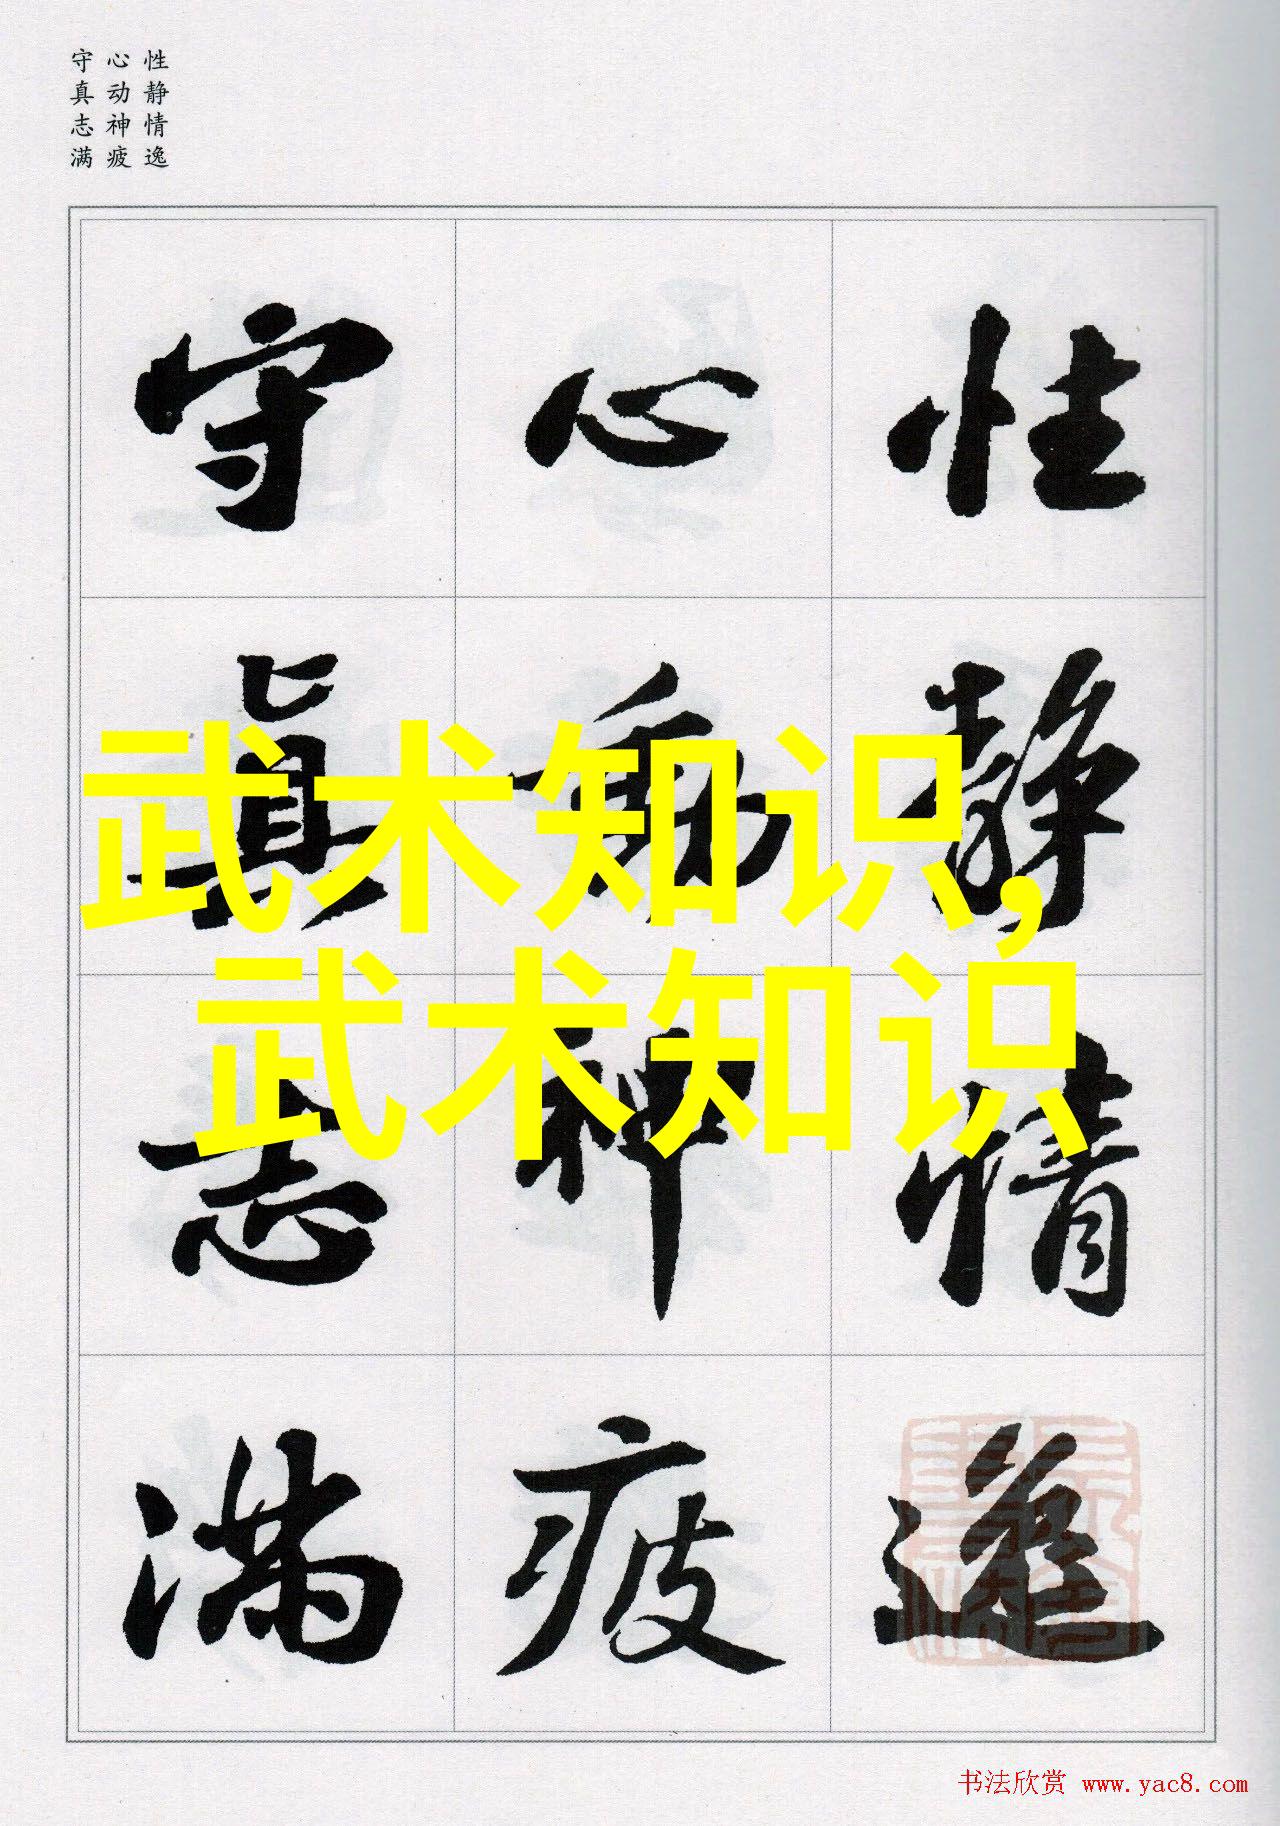 性静情逸
心动神疲
守真志满
性静情逸
心动神疲
守真志满
武术知识,
武术知识
书法欣赏 www.yac8.com